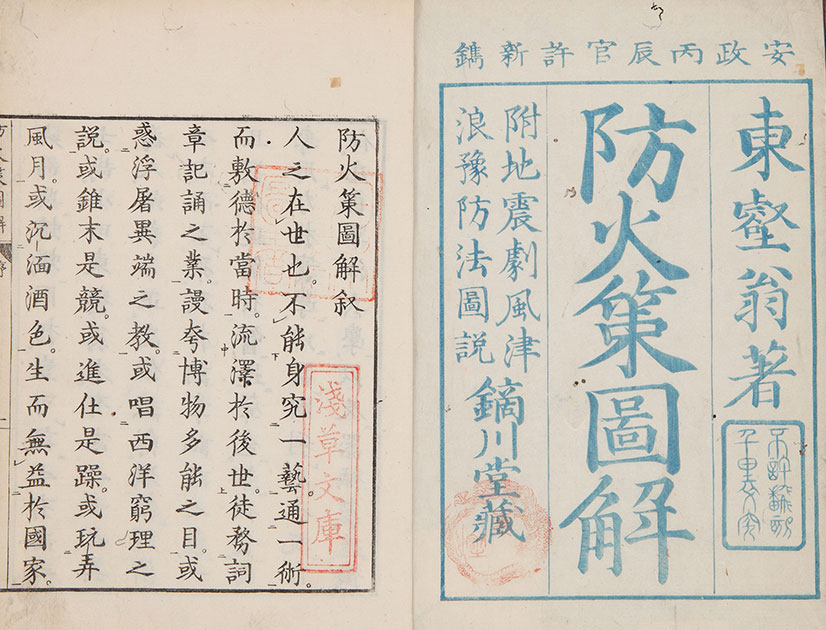 安政丙辰官許新鐫
東壑翁著
不許翻刻
千里必究
防火策圖解
附地震劇風津
浪豫防法圖説
鏑川堂藏
防火策圖解叙
人之在世也。不能身究一藝通一術。
而敷德於當時。流澤於後世。徒務詞
章記誦之業。謾夸博物多能之目。或
惑浮屠異端之教。或唱西洋窮理之
説。或錐末是競。或進仕是躁。或玩弄
風月。或沉湎酒色。生而無益於國家。
淺草文庫